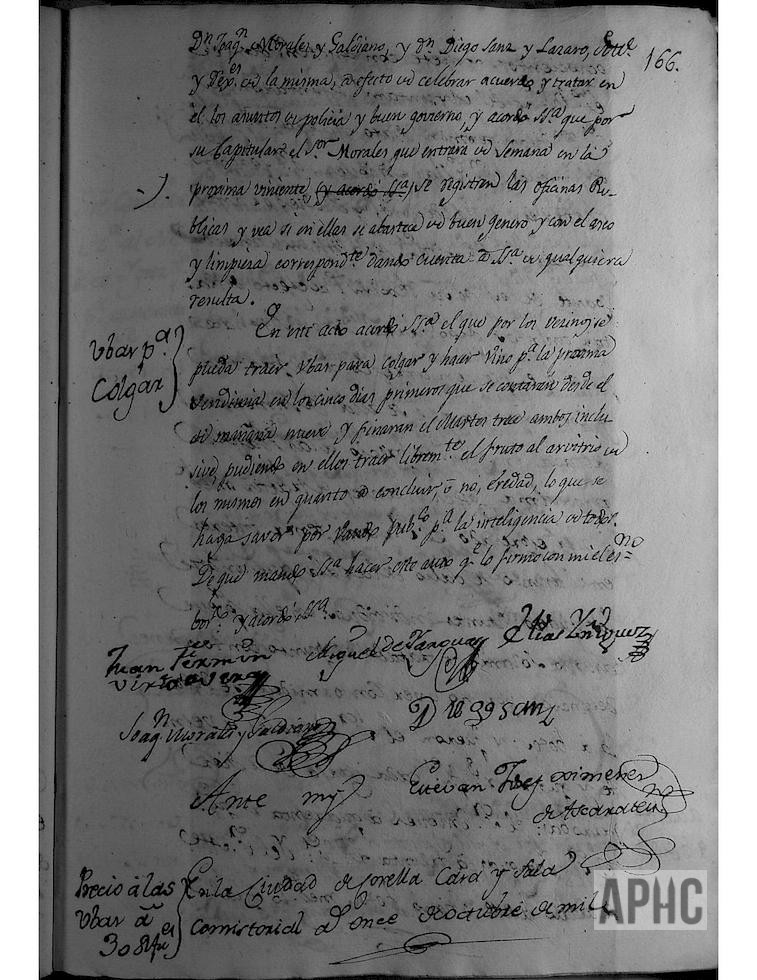 166.
Dn. Joaqn. Morales y Galdiano, y dn. Diego Sanz y Lazaro,
y de la misma, a efecto de celebrar acuerdo y tratar en
el los asuntos de policia y buen govierno, y acordo SSa. que por
su Capitular el Sor. Morales que entrara de semana en la
proxima viniente, (y acordo SSa.) se registren las oficinas Pu-
blicas y vea si en ellas se abastece de buen genero y con el aseo
y limpieza correspondte. dando cuenta a SSa. de qualquiera
resulta.
Ubas pa.
Colgar
En este acto acordo SSa. el que por los vezinos se
pueda traer Ubas para colgar y hacer vino pa. la proxima
vendimia en los cinco dias primeros que se contaran desde el
de mañana nueve y finaran el Martes trece ambos inclu
sive, pudiendo en ellos traer libremte. el fruto al arvitrio de
los mismos en quanto a concluir, ó no, eredad, lo que se
haga saver por vando pubco. pa. la inteligencia de todos.
De que mando SSa. hacer este auto qe. lo firmo con mi el es-no
y acordo SSa.
Juan Fermin
Miguel de
Elias Enriquez
Joaqn. Morales y Galdiano
Diego Sanz
Ante my
Estevan Jph. Ximenez
de Ascarate
Precio á las
Ubas á
30
En la Ciudad de Corella Casa y Sala
Consistorial a once de octubre de mill
APHC